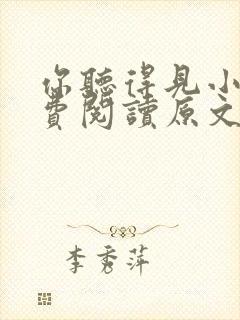 你聽得見小
費閱讀原文
李秀萍